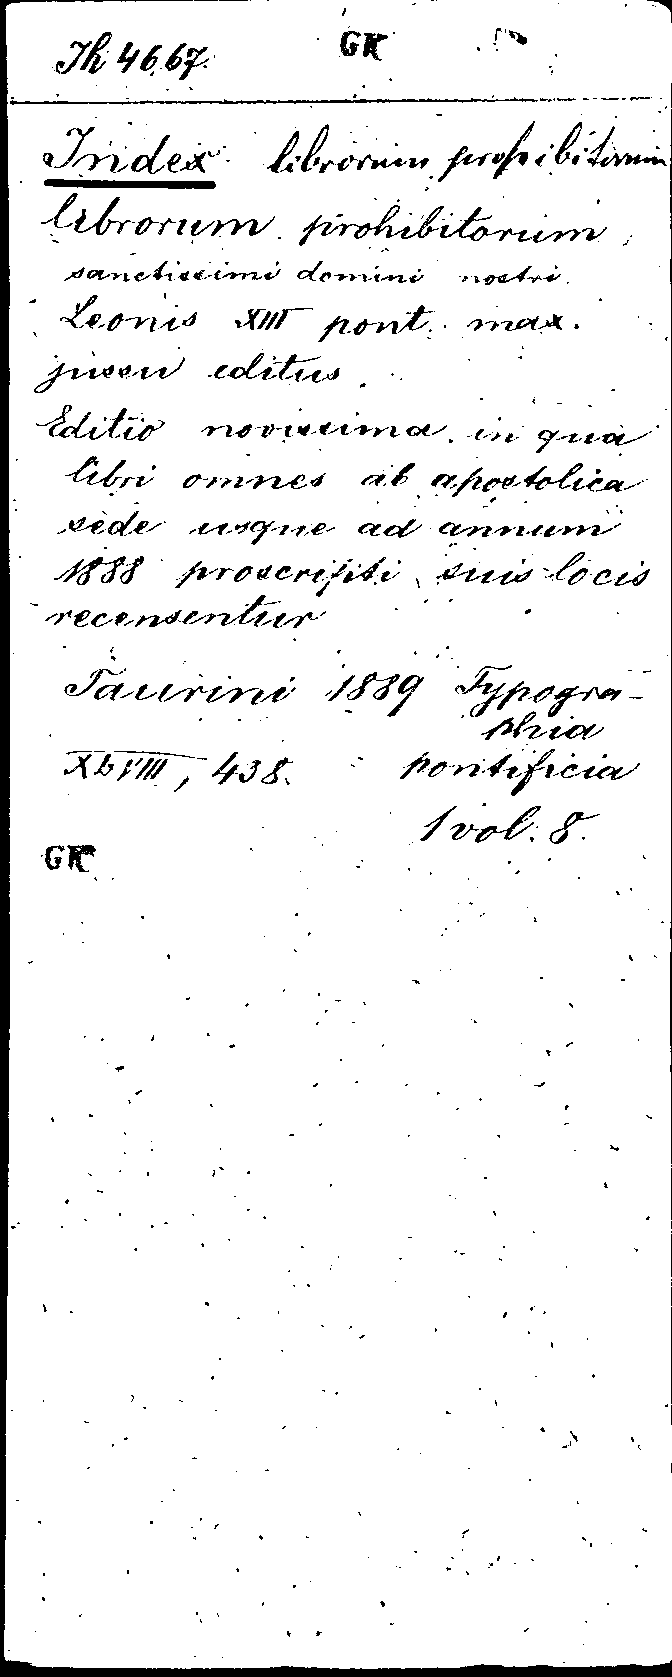 Th 4667. GK
Index librorum prohibitorum
librorum prohibitorum
sanctissimi domini nostri
Leonis XIII pont. max.
jussu editus.
Editio novissima in qua
libri omnes ab apostolica
sede usque ad annum
1888 proscripti suis locis
recensentur
Taurini 1889 Typogra-
phia
XLVIII, 438. pontificia
1 vol. 8.
GK